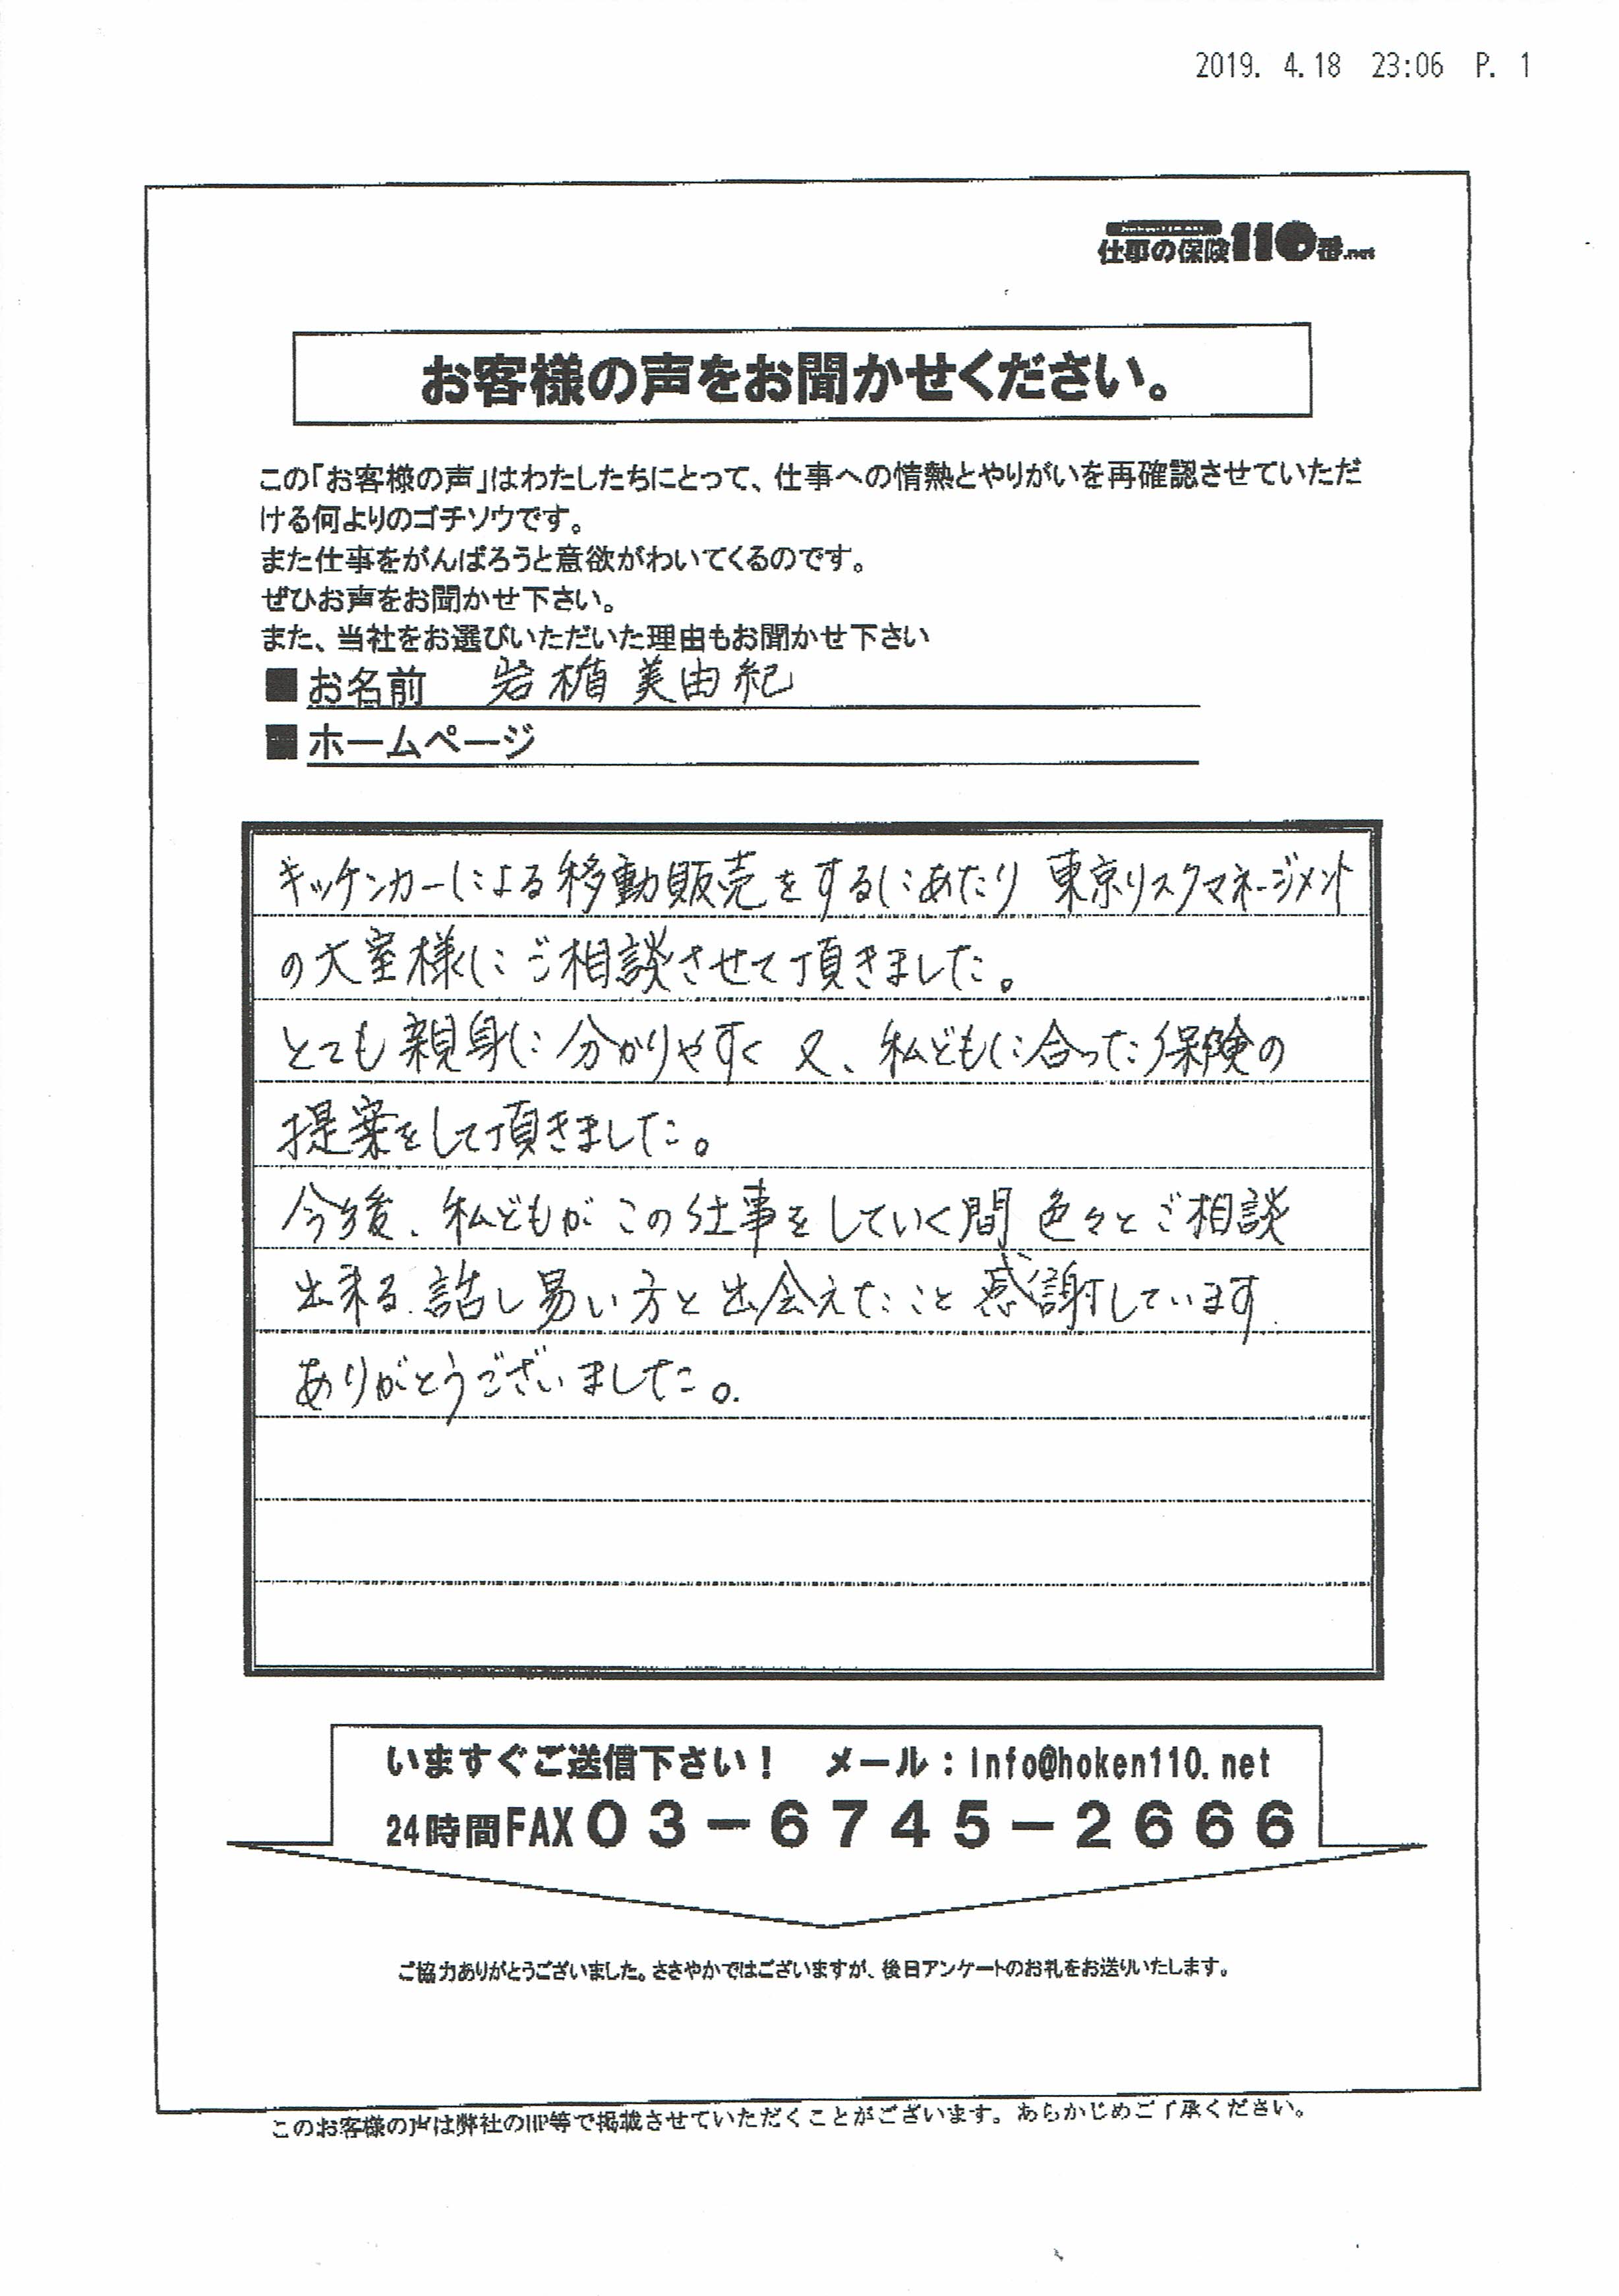 2019. 4.18 23:06 P. 1
仕事の保険110番.net
お客様の声をお聞かせください。
この「お客様の声」はわたしたちにとって、仕事への情熱とやりがいを再確認させていただ
ける何よりのゴチソウです。
また仕事をがんばろうと意欲がわいてくるのです。
ぜひお声をお聞かせ下さい。
また、当社をお選びいただいた理由もお聞かせ下さい
■お名前 岩楯 美由紀
■ホームページ
キッケンカーによる移動販売をするにあたり 東京リスクマネージメント
の大室様にご相談させて頂きました。
とても親身に分かりやすく 又、私どもに合った保険の
提案をして頂きました。
今後、私どもがこの仕事をしていく間 色々とご相談
出来る、話し易い方と出会えたこと感謝しています
ありがとうございました。
いますぐご送信下さい! メール:info@hoken110.net
24時間FAX03-6745-2666
ご協力ありがとうございました。ささやかではございますが、後日アンケートのお礼をお送りいたします。
このお客様の声は弊社のHP等で掲載させていただくことがございます。あらかじめご了承ください。